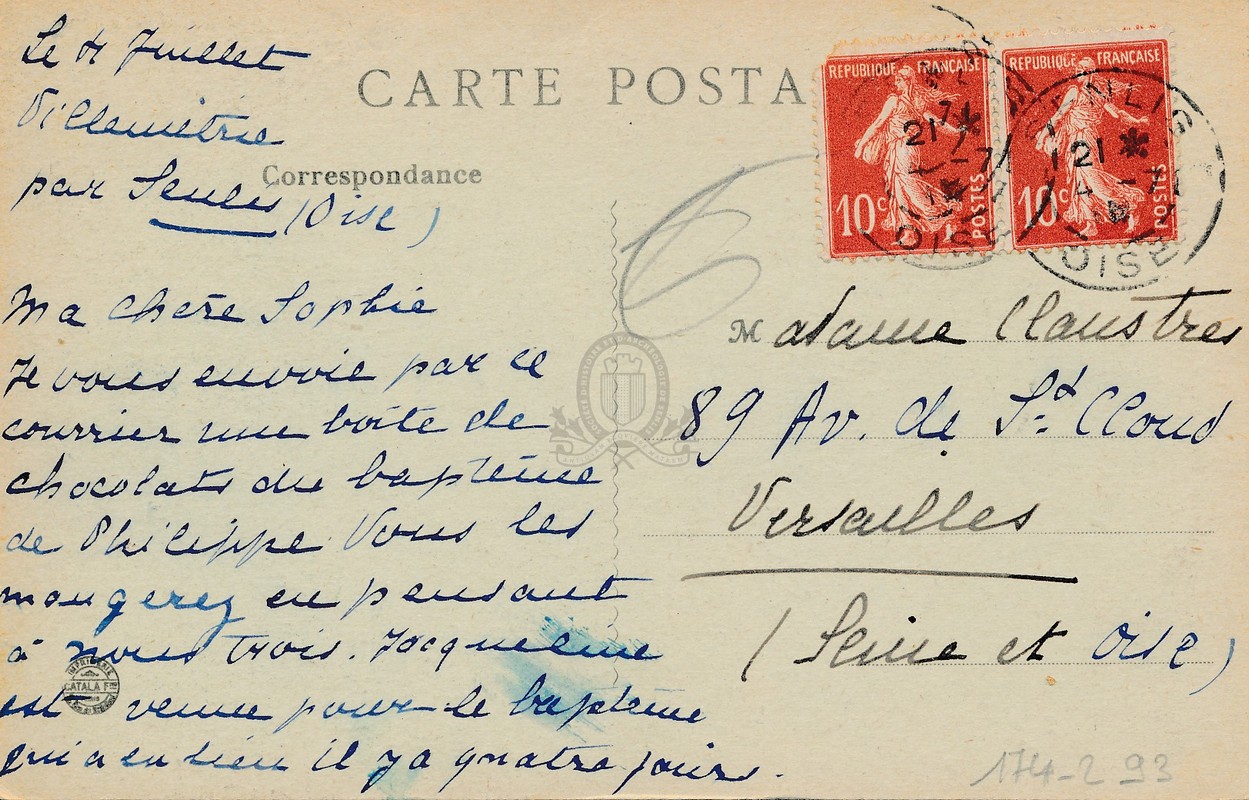 CARTE POSTA
Le 4 Juillet
Villemétrie
par Senlis (Oise)
Correspondance
Ma chere Sophie
Je vous envoie par ce
courrier une boîte de
chocolats du baptême
de Philippe Vous les
mangerez en pensant
à nous trois. Jacqueline
est venue pour le baptême
qui a eu lieu il y a quatre jours.
REPUBLIQUE FRANÇAISE
10c POSTES
REPUBLIQUE FRANÇAISE
10c POSTES
21 *
OISE
SENLIS
21 *
4 - 7
OISE
Madame Claustres
89 Av. de St. Cloud
Versailles
(Seine et Oise)
IMPRIMERIE
CATALA F
174-2 93